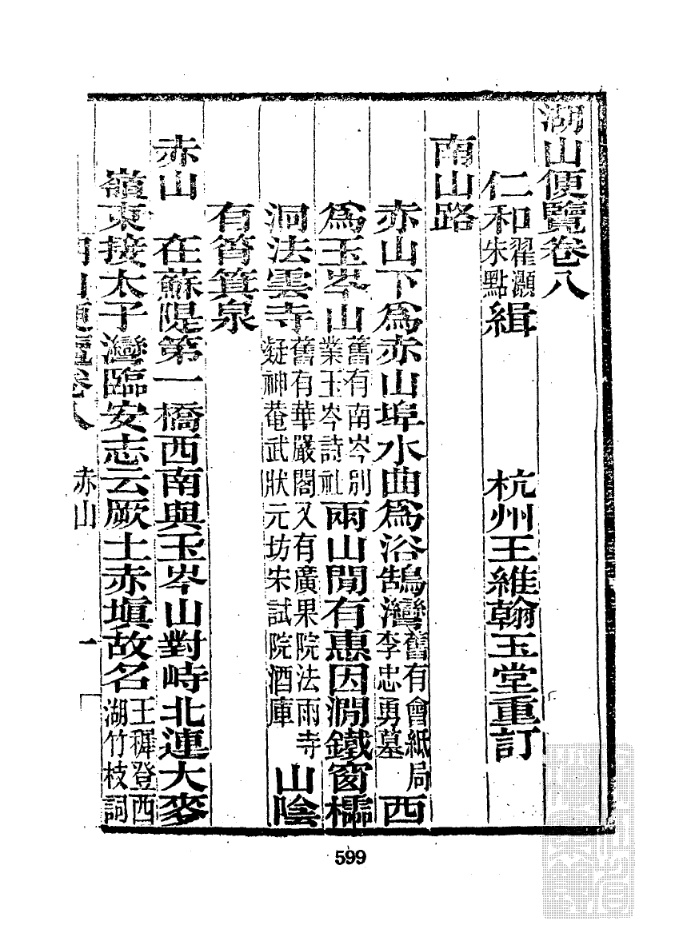 湖山便覽卷八
仁和翟灝朱點緝　杭州王維翰玉堂重訂
南山路
赤山下爲赤山埠水曲爲浴鵠灣舊有會紙局李忠勇墓西
爲玉岑山舊有南岑別業玉岑詩社兩山閒有惠因澗鐵窗櫺
洞法雲寺舊有華嚴閣又有廣果院法雨寺疑神菴武狀元坊宋試院酒庫山陰
有筲箕泉
赤山　在蘇隄第一橋西南與玉岑山對峙北連大麥
嶺東接太子灣臨安志云厥土赤埴故名王穉登西湖竹枝詞
湖山便覽卷八　赤山　一
599